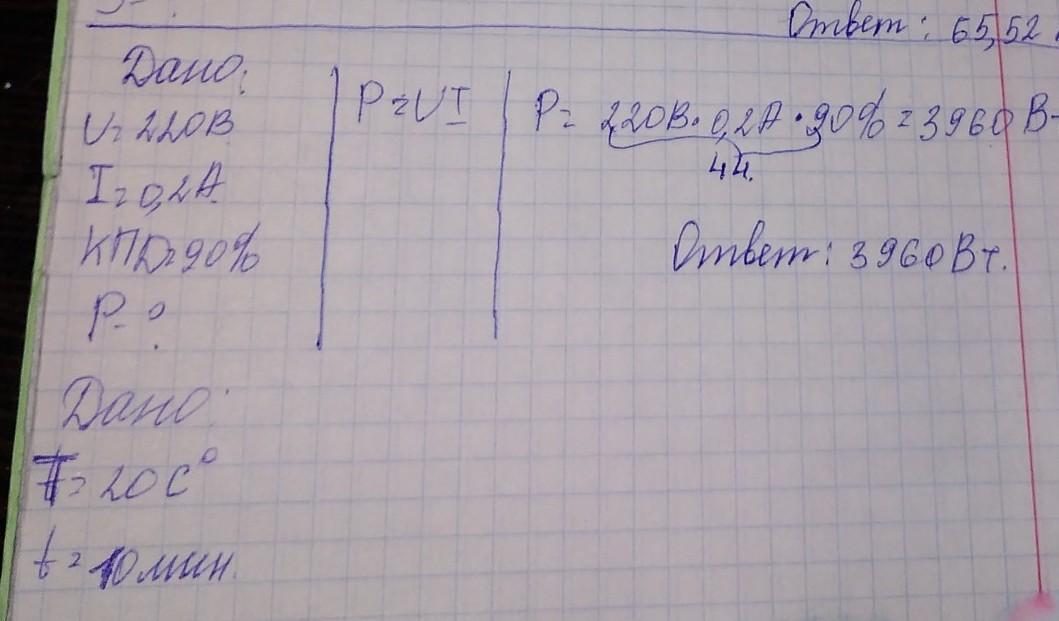 Ответ: 65,52
Дано:
U=220В
I=0,2А
КПД=90%
P-?
P=UI
P= 220В·0,2А·90%=3960 Вт
44.
Ответ: 3960Вт.
Дано:
T=20С°
t=10мин.